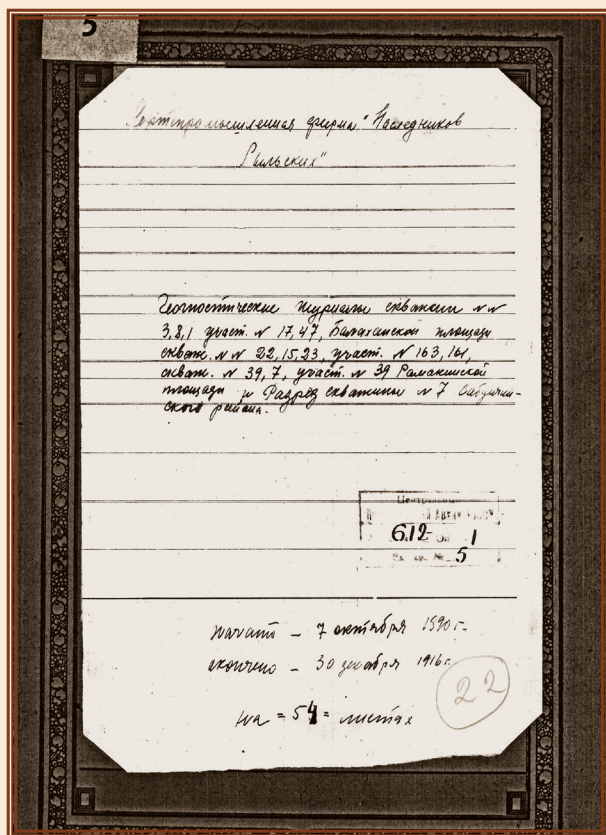 5
Нефтепромышленная фирма "Наследников
Рыльских"
Геогностические журналы скважин NN
3,8,1 участ. N 17,47, Балаханской площади
скваж. NN 22,15,23, участ. N 163,161,
скваж. N 39,7, участ. N 39 Раманинской
площади и Разрез скважины N 7 Сабунчин-
ского района.
Центральный
612 1
Ед. хр. № 5
начато – 7 октября 1890 г.
окончено – 30 декабря 1916 г.
на = 54 = листах
22